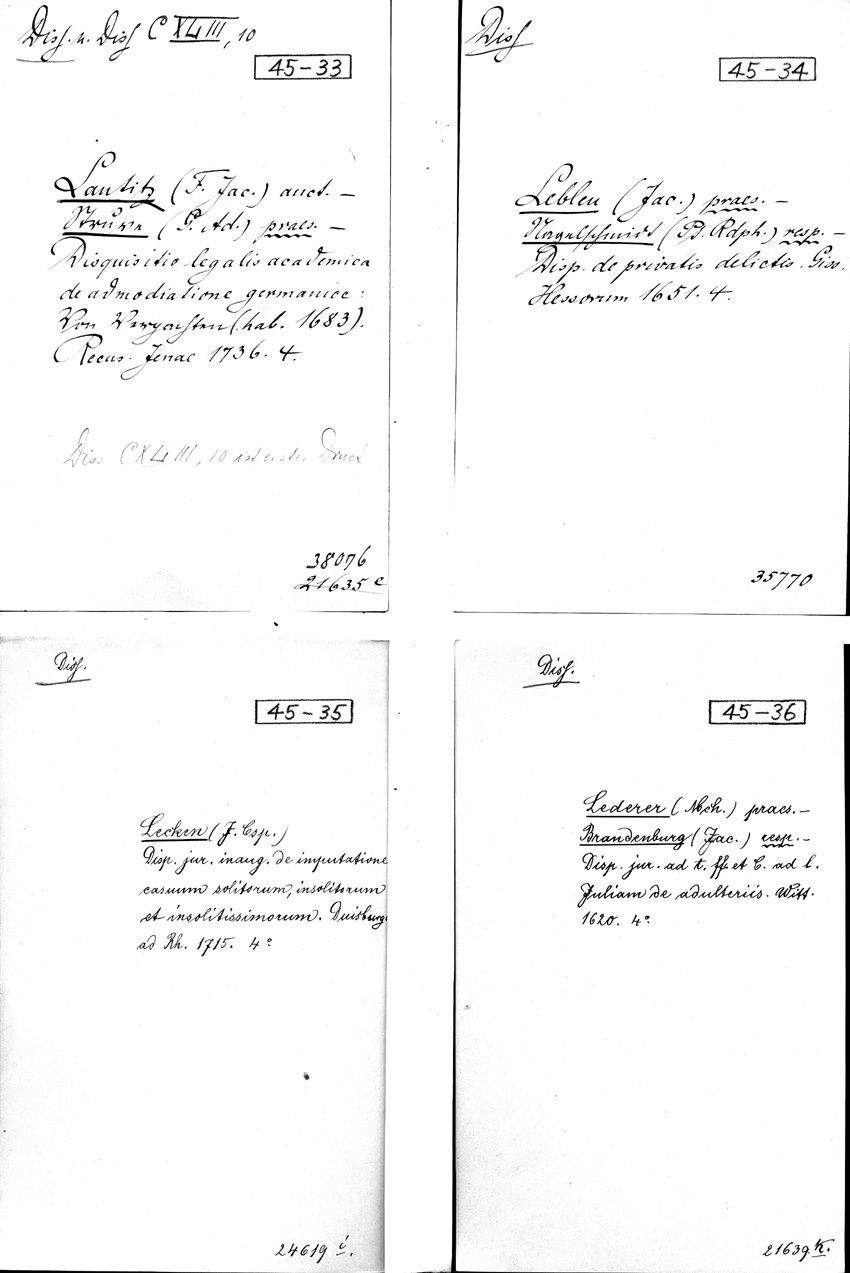 Diss. u. Diss C XLIII, 10
45-33
Lautitz (F. Jac.) auct. —
Struve (G. Ad.) praes. —
Disquisitio legalis academica
de admodiatione germanice:
Von Verpachten (hab. 1683).
Recus. Jenae 1736. 4.
Diss CXLIII, 10 ist erster Druck
38076
21635 e
Diss
45-34
Lebleu (Jac.) praes. —
Nagelschmidt (Pd. Rdph.) resp. —
Disp. de privatis delictis. Giss.
Hessorum 1651. 4.
35770
Diss.
45-35
Lecken (J. Csp.)
Disp. jur. inaug. de imputatione
casuum solitorum, insolitorum
et insolitissimorum. Duisburg
ad Rh. 1715. 4°
24619 i.
Diss.
45-36
Lederer (Mch.) praes. —
Brandenburg (Jac.) resp. —
Disp. jur. ad t. ff. et C. ad l.
Juliam de adulteriis. Witt.
1620. 4°
21639 k.